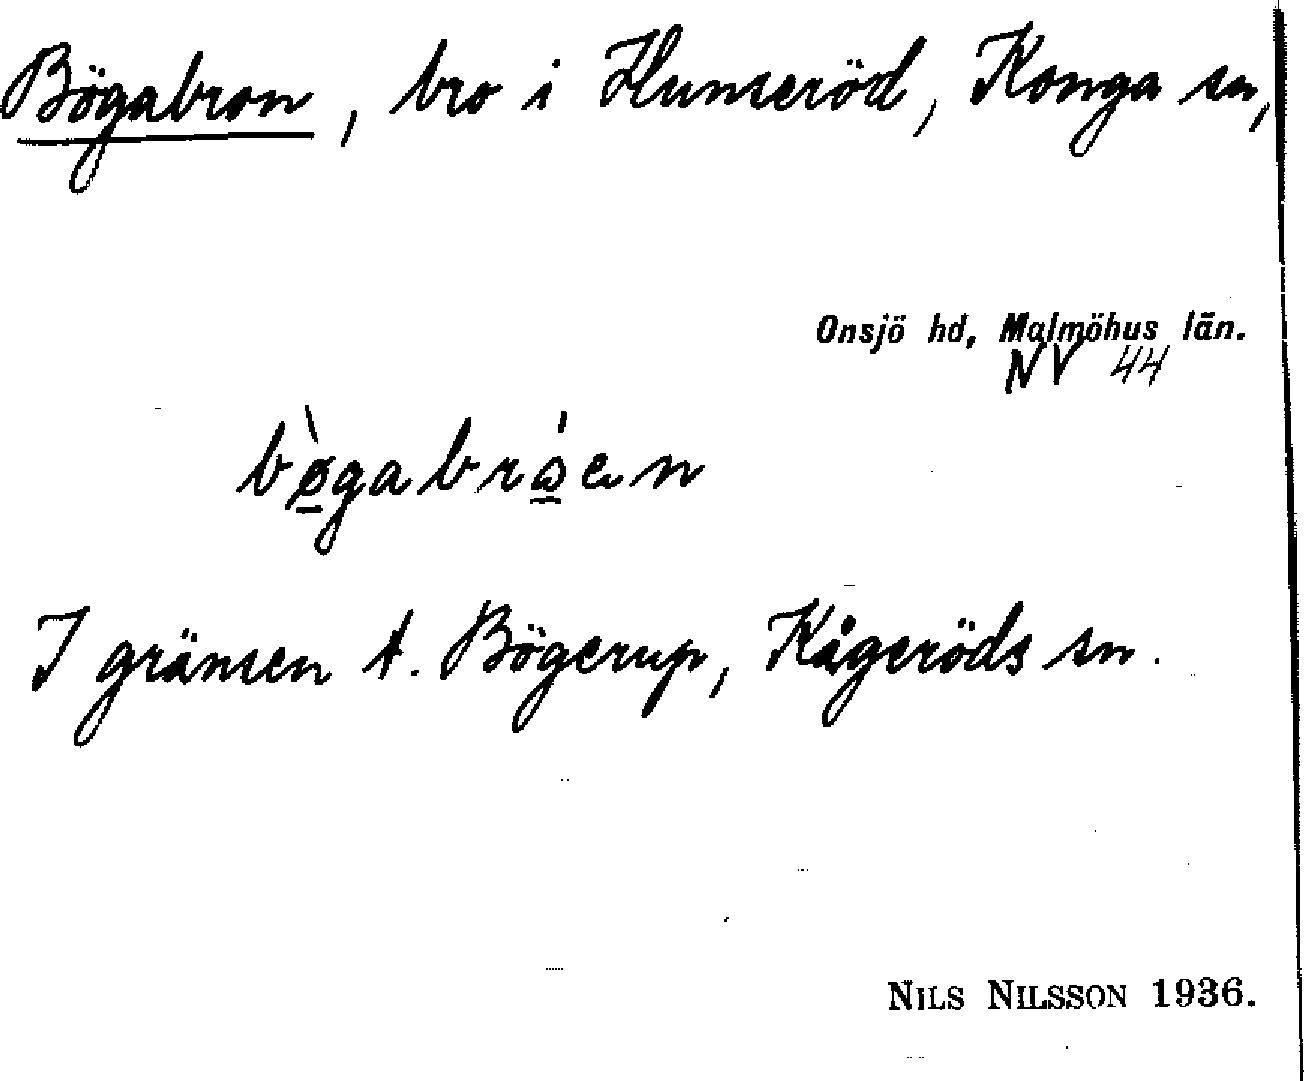 Bögabron, bro i Hunseröd, Konga sn,
Onsjö hd, Malmöhus län.
NV 44
bø̀gabrώen
I gränsen t. Bögerup, Kågeröds sn.
NILS NILSSON 1936.